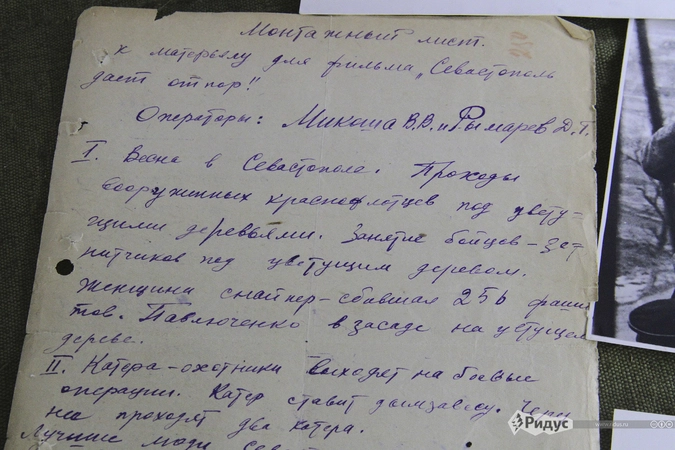 Монтажный лист.
к матерьялу для фильма „Севастополь
даст отпор!!
Операторы: Микоша В.В. и Рымарев Д.Г.
I. Весна в Севастополе. Проходы
вооруженных краснофлотцев под цвету-
щими деревьями. Занятие бойцов-зат
нитчиков под цветущим деревом.
Женщина снайпер-сбившая 256 фашис
тов. Павлюченко в засаде на цетущем
дереве.
II. Катера-охотники выходят на боевые
операции. Катер ставит дымзавесу. Чере
на проходят два катера.
Лучшие люди
Ридус
www.ridus.ru